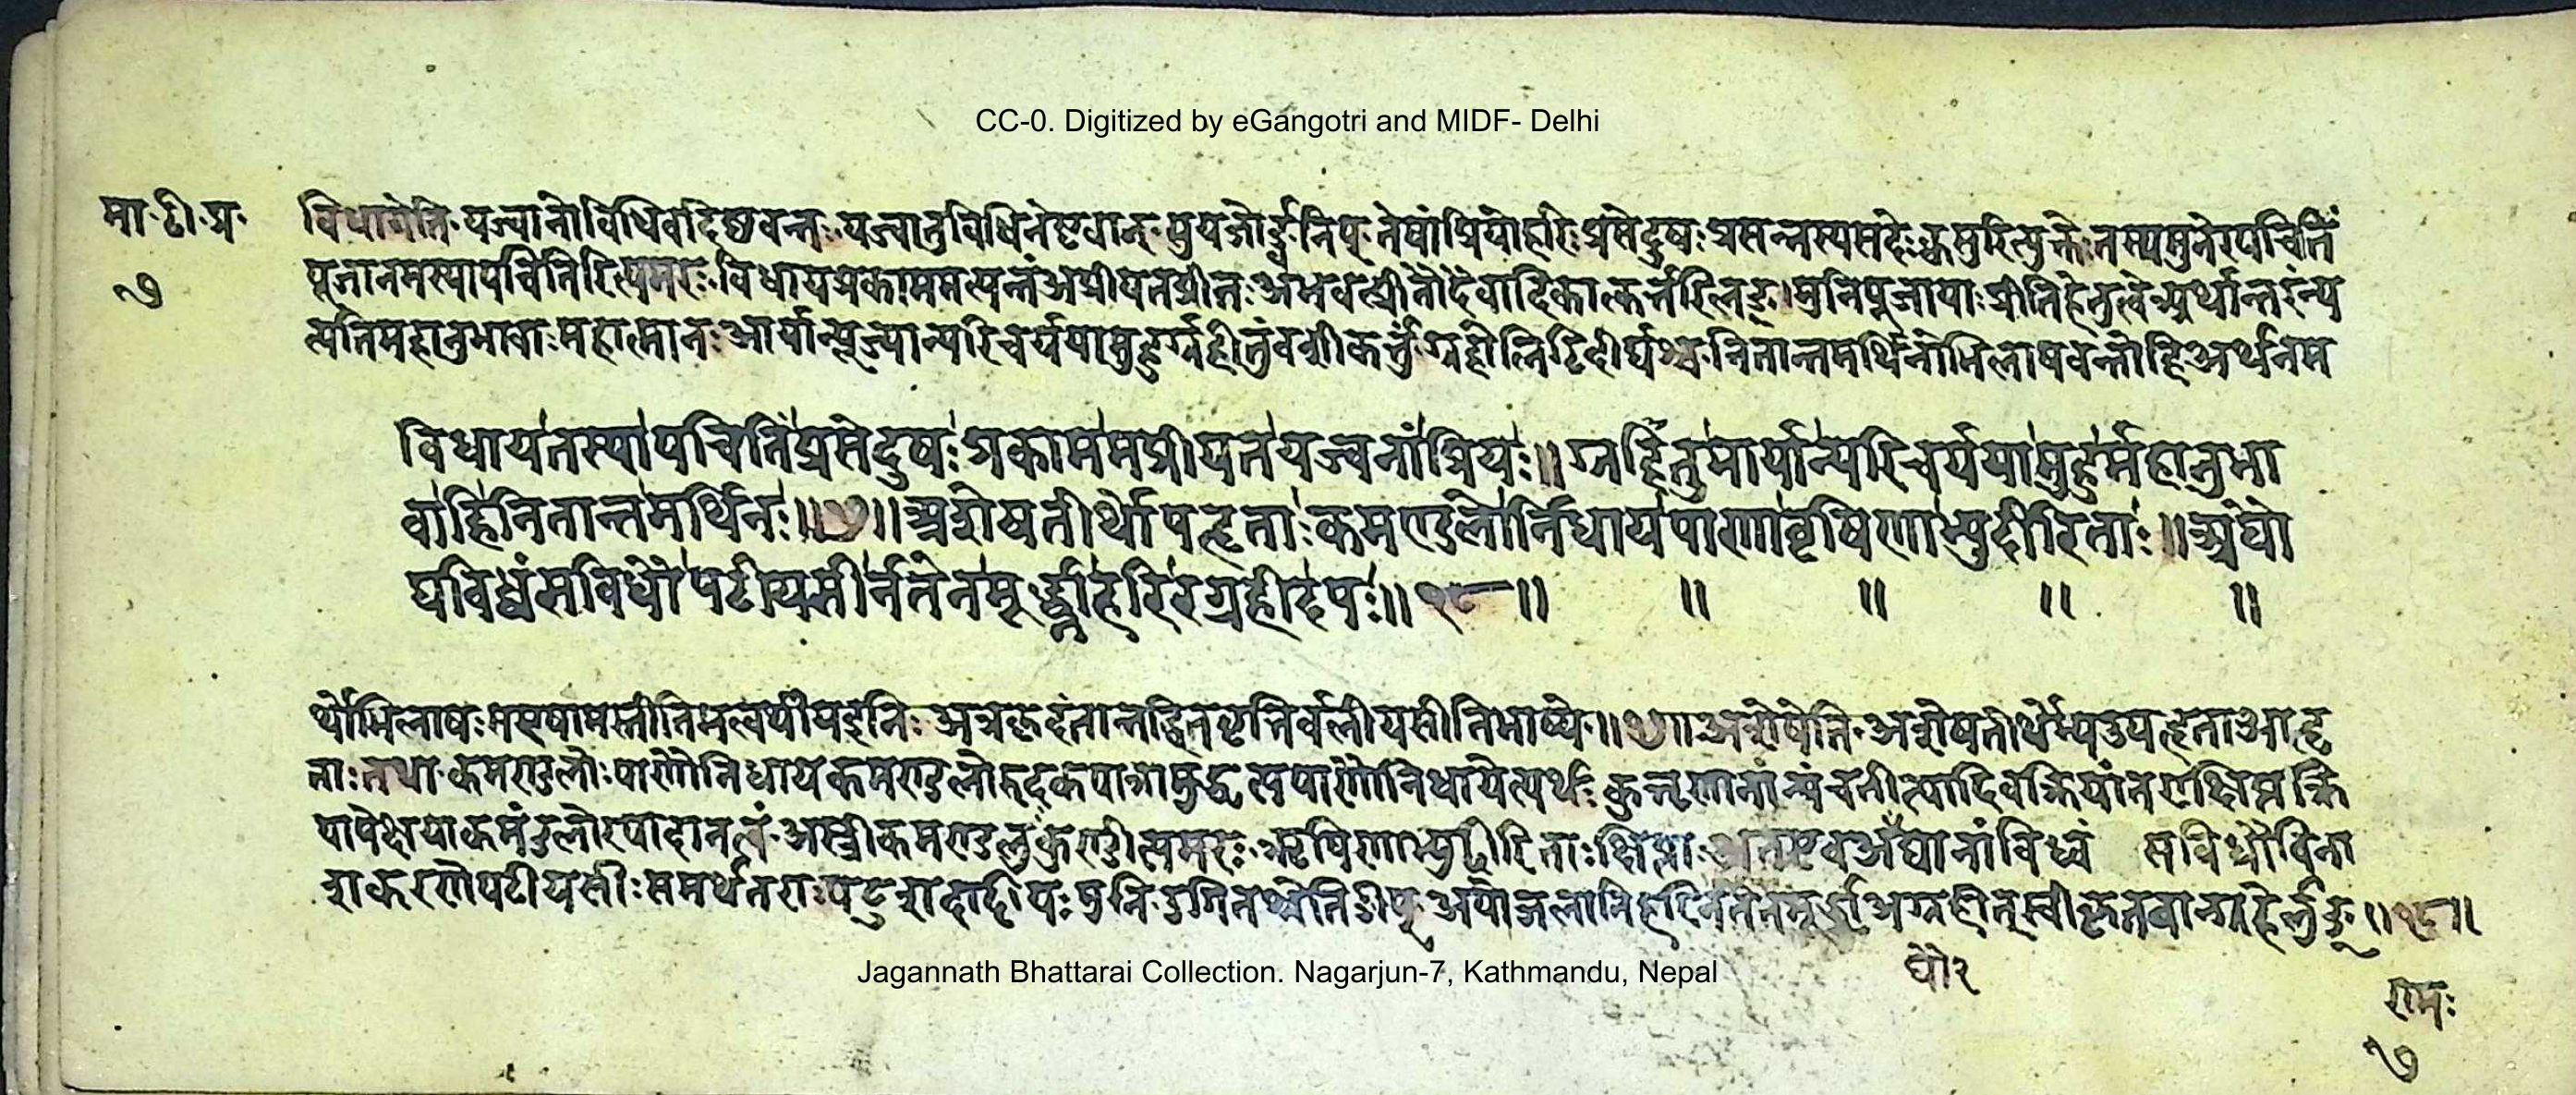 CC-0. Digitized by eGangotri and MIDF- Delhi
मा॰टी॰प्र॰
७
विधायेति॰ यज्वानो विधिवदिष्टवन्तः यज्वा तु विधिनेष्टवान्॰ सुयजोर्ङ्वनिप् तेषां प्रियो हरिः प्रसेदुषः प्रसन्नस्य सदेः क्वसुरित्युक्तेः तस्य मुनेरपचितिं
पूजा नमस्यापचितिरित्यमरः विधाय प्रकाममत्यन्तं अप्रीयत प्रीतः अभवत्प्रीतौ देवादिकात्कर्त्तरि लङ्। मुनिपूजायाः प्रीतिहेतुत्वे अर्थान्तरं न्य
त्यति महानुभावाः महात्मानः आर्यान्पूज्यान्परिचर्यया मुहुर्ग्रहीतुं वशीकर्त्तुं ग्रहोलिटिदीर्घश्च नितान्तमर्थिनोभिलाषवन्तो हि अर्थनम
विधाय तस्यापचितिं प्रसेदुषः प्रकाममप्रीयत यज्वनां प्रियः॥ ग्रहीतुमार्यान्परिचर्यया मुहुर्महानुभा
वा हि नितान्तमर्थिनः॥१७॥ अशेषतीर्थोपहृताः कमण्डलोर्निधाय पाणावृषिणाभ्युदीरिताः॥ अघौ
घविध्वंसविधौ पटीयसीर्नतेन मूर्द्ध्ना हरिरग्रहीदपः॥१८॥ ॥ ॥ ॥ ॥
र्थोभिलाषः स एषामस्तीति मत्वर्थीय इनिः अत्र कृदंतात्तद्धितवृत्तिर्बलीयसीति भाष्ये॥१७॥ अशेषेति॰ अशेषतीर्थेभ्य उपहृता आहृ
ताः तथा कमण्डलोः पाणौ निधाय कमण्डलोरुदकपात्रादुद्धृत्य पाणौ निधायेत्यर्थः
पापेक्षया कमंडलोरपादानत्वं॰ अस्त्री कमण्डलुः कुण्डीत्यमरः ऋषिणाभ्युदीरिताः क्षिप्ताः अतएव अघानां विध्वं सविधौ विना
शकरणे पटीयसीः समर्थतराः पटुशब्दादीयसुनि उगितश्चेति ङीप् अपो जलानि हरिर्नतेन मूर्द्ध्ना अग्रहीत् स्वीकृतवान् ग्रहेर्लुङ्॥१८॥
घौ२
Jagannath Bhattarai Collection. Nagarjun-7, Kathmandu, Nepal
रामः
७